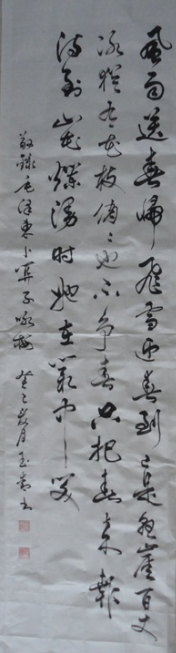 風雨送春歸飛雪迎春到已是懸崖百丈
冰猶有花枝俏俏也不争春只把春來報
待到山花爛漫時她在叢中笑
敬錄毛澤東卜算子咏梅 癸巳 月 書